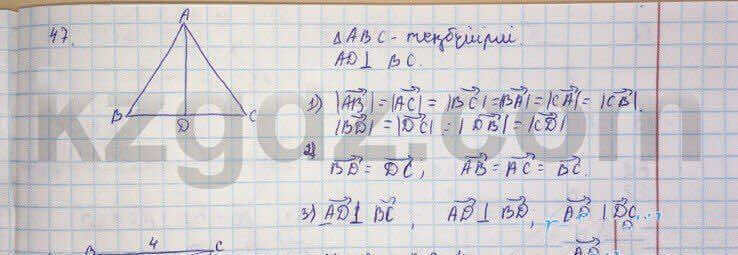 47.
A
B
D
C
△ABC - теңбүйірлі.
AD⊥ BC.
1) |AB| = |AC| = |BC| = |BA| = |CA| = |CB|.
|BD| = |DC| = |DB| = |CD|
2)
BD = DC, AB = AC = BC.
3) AD⊥ BC, AD⊥ BD, AD⊥DC
B 4 C
AD
kzgdz.com